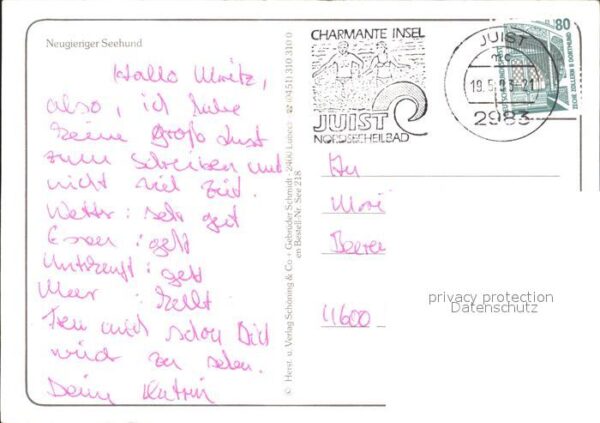 Neugieriger Seehund
Hallo Moritz,
also, ich habe
keine große Lust
zum Schreiben und
nicht viel Zeit.
Wetter: sehr gut
Essen: geht
Unterkunft: geht
Meer: kalt
Freu mich schon Dich
wieder zu sehen.
Deine Katrin
© Herst. u. Verlag Schöning & Co + Gebrüder Schmidt · 2400 Lübeck ☎ (0451) 310 310 0
en Bestell-Nr. See 218
CHARMANTE INSEL
JUIST
NORDSEEHEILBAD
JUIST
19.5 -21
2983
80
ZECHE ZOLLERN II DORTMUND
DEUTSCHE BUNDESPOST
An
4600
privacy protection
Datenschutz